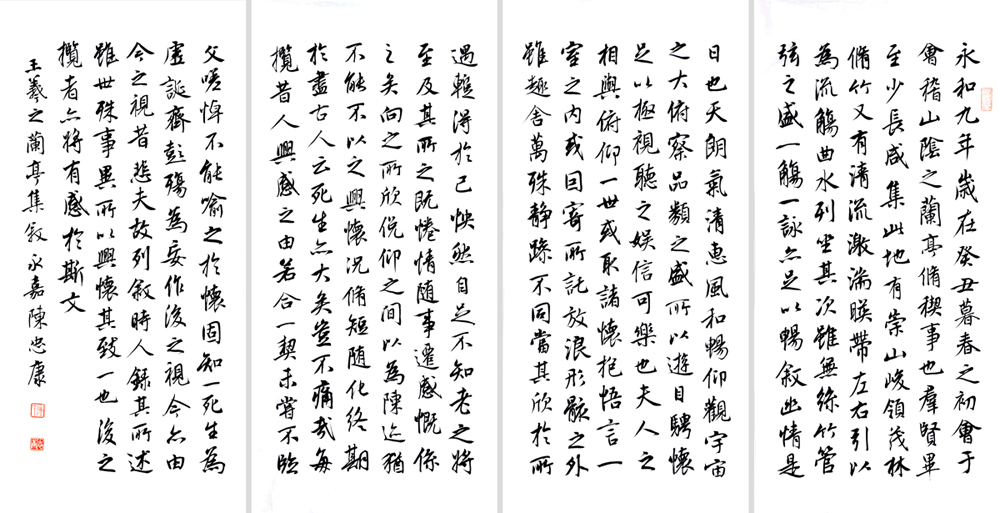 永和九年歲在癸丑暮春之初會于
會稽山陰之蘭亭脩禊事也羣賢畢
至少長咸集此地有崇山峻領茂林
脩竹又有清流激湍暎帶左右引以
為流觴曲水列坐其次雖無絲竹管
弦之盛一觴一詠亦足以暢敘幽情是
日也天朗氣清惠風和暢仰觀宇宙
之大俯察品類之盛所以遊目騁懷
足以極視聽之娛信可樂也夫人之
相與俯仰一世或取諸懷抱悟言一
室之內或因寄所託放浪形骸之外
雖趣舍萬殊靜躁不同當其欣於所
遇輒得於己怏然自足不知老之將
至及其所之既惓情隨事遷感慨係
之矣向之所欣俛仰之間以為陳迹猶
不能不以之興懷況脩短隨化終期
於盡古人云死生亦大矣豈不痛哉每
攬昔人興感之由若合一契未嘗不臨
文嗟悼不能喻之於懷固知一死生為
虛誕齊彭殤為妄作後之視今亦由
今之視昔悲夫故列敘時人錄其所述
雖世殊事異所以興懷其致一也後之
攬者亦將有感於斯文
王羲之蘭亭集敘永嘉陳忠康